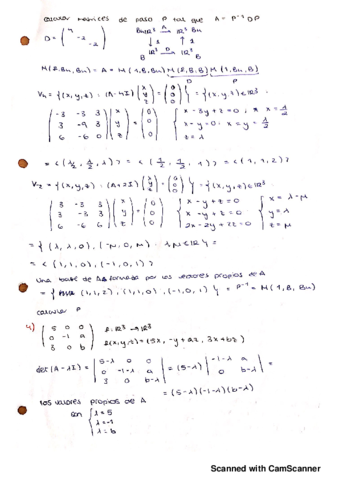 calcular matrices de paso P tal que A = P⁻¹DP
D = (4 -2 -2)
M(f,Bu,Bu) = A = M(1,B,Bu) M(f,B,B) M(1,Bu,B)
V₄ = {(x,y,z) : (A-4I)(x y z) = (0 0 0)} = {(x,y,z) ∈ ℝ³
(-3 -3 3 / 3 -9 3 / 6 -6 0)(x y z) = (0 0 0) { x-3y+z=0 ; x = λ/2
x-y=0 ; x=y= λ/2
z=λ
= <(λ/2, λ/2, λ)> = <(1/2, 1/2, 1)> = <(1,1,2)>
V₂ = {(x,y,z) : (A+2I)(x y z) = (0 0 0)} = {(x,y,z) ∈ ℝ³
(3 -3 3 / 3 -3 3 / 6 -6 6)(x y z) = (0 0 0) { x-y+z=0 { x=λ-μ
x-y+z=0 y=λ
2x-2y+2z=0 z=μ
= {(λ,λ,0), (-μ,0,μ) λ,μ∈ℝ} =
= <(1,1,0), (-1,0,1)>
Una base de formada por los vectores propios de A
= {(1,1,2), (1,1,0), (-1,0,1)} = P⁻¹ = M(1,B,Bu)
calcular P
4) (5 0 0 / 0 -1 a / 3 0 b) f: ℝ³ → ℝ³
f(x,y,z) = (5x, -y+az, 3x+bz)
det(A-λI) = |5-λ 0 0 / 0 -1-λ a / 3 0 b-λ| = (5-λ) |-1-λ a / 0 b-λ| =
= (5-λ)(-1-λ)(b-λ)
Los valores propios de A
son { λ=5
λ=-1
λ=b
Scanned with CamScanner